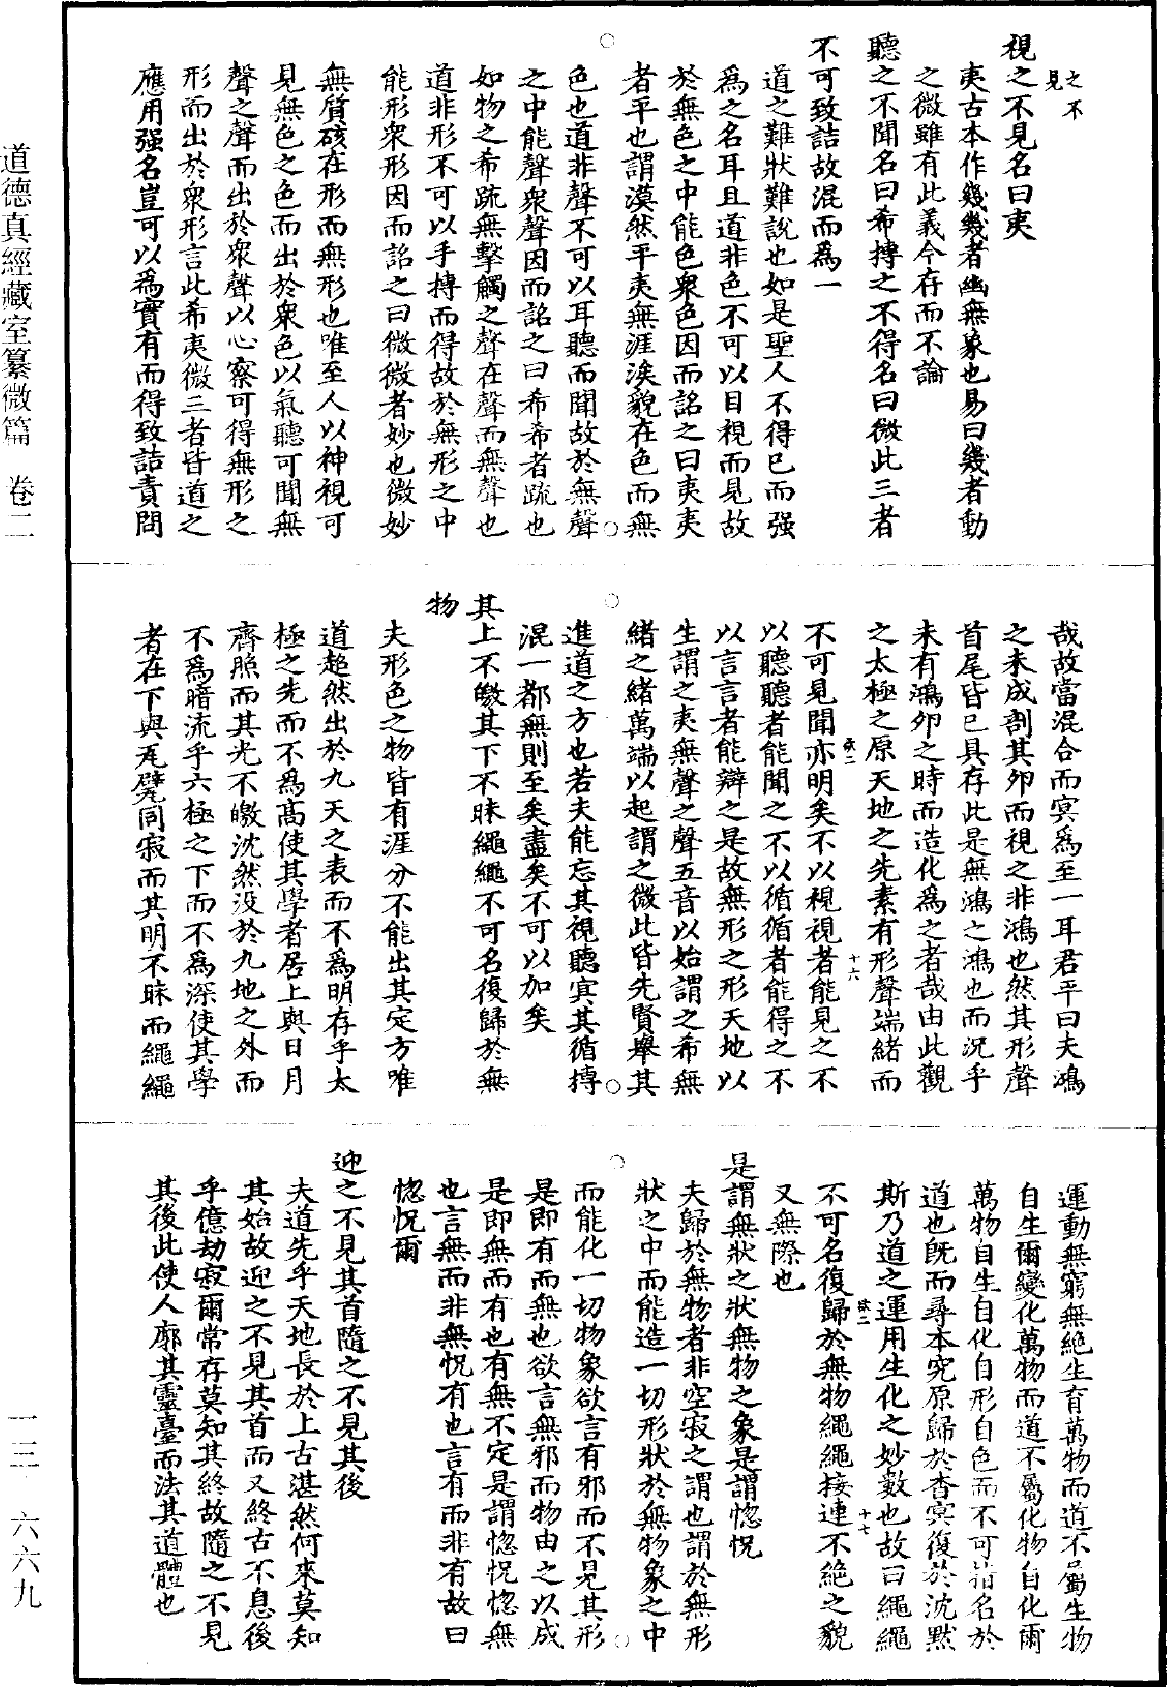 視之不見名曰夷
之不
見
夷古本作幾幾者幽無象也易曰幾者動
之微雖有此義今存而不論
聽之不聞名曰希摶之不得名曰微此三者
不可致詰故混而爲一
道之難狀難說也如是聖人不得已而强
爲之名耳且道非色不可以目視而見故
於無色之中能色衆色因而詺之曰夷夷
者平也謂漠然平夷無涯涘貌在色而無
色也道非聲不可以耳聽而聞故於無聲
之中能聲衆聲因而詺之曰希希者疏也
如物之希疏無擊觸之聲在聲而無聲也
道非形不可以手摶而得故於無形之中
能形衆形因而詺之曰微微者妙也微妙
無質礙在形而無形也唯至人以神視可
見無色之色而出於衆色以氣聽可聞無
聲之聲而出於衆聲以心察可得無形之
形而出於衆形言此希夷微三者皆道之
應用强名豈可以爲實有而得致詰責問
哉故當混合而冥爲至一耳君平曰夫鴻
之未成剖其卵而視之非鴻也然其形聲
首尾皆已具存此是無鴻之鴻也而況乎
未有鴻卵之時而造化爲之者哉由此觀
之太極之原天地之先素有形聲端緒而
不可見聞亦明矣不以視視者能見之不
以聽聽者能聞之不以循循者能得之不
以言言者能辯之是故無形之形天地以
生謂之夷無聲之聲五音以始謂之希無
緒之緒萬端以起謂之微此皆先賢舉其
進道之方也若夫能忘其視聽冥其循摶
混一都無則至矣盡矣不可以加矣
其上不皦其下不昧繩繩不可名復歸於無
物
夫形色之物皆有涯分不能出其定方唯
道超然出於九天之表而不爲明存乎太
極之先而不爲高使其學者居上與日月
齊照而其光不皦沈然没於九地之外而
不爲暗流乎六極之下而不爲深使其學
者在下與瓦甓同寂而其明不昧而繩繩
運動無窮無絶生育萬物而道不屬生物
自生爾變化萬物而道不屬化物自化爾
萬物自生自化自形自色而不可指名於
道也既而尋本究原歸於杳冥復於沈默
斯乃道之運用生化之妙數也故曰繩繩
不可名復歸於無物繩繩接連不絶之貌
又無際也
是謂無狀之狀無物之象是謂惚恍
夫歸於無物者非空寂之謂也謂於無形
狀之中而能造一切形狀於無物象之中
而能化一切物象欲言有邪而不見其形
是即有而無也欲言無邪而物由之以成
是即無而有也有無不定是謂惚恍惚無
也言無而非無恍有也言有而非有故曰
惚恍爾
迎之不見其首隨之不見其後
夫道先乎天地長於上古湛然何來莫知
其始故迎之不見其首而又終古不息後
乎億劫寂爾常存莫知其終故隨之不見
其後此使人廓其靈臺而法其道體也
道德真經藏室纂微篇　卷二
一三·六六九